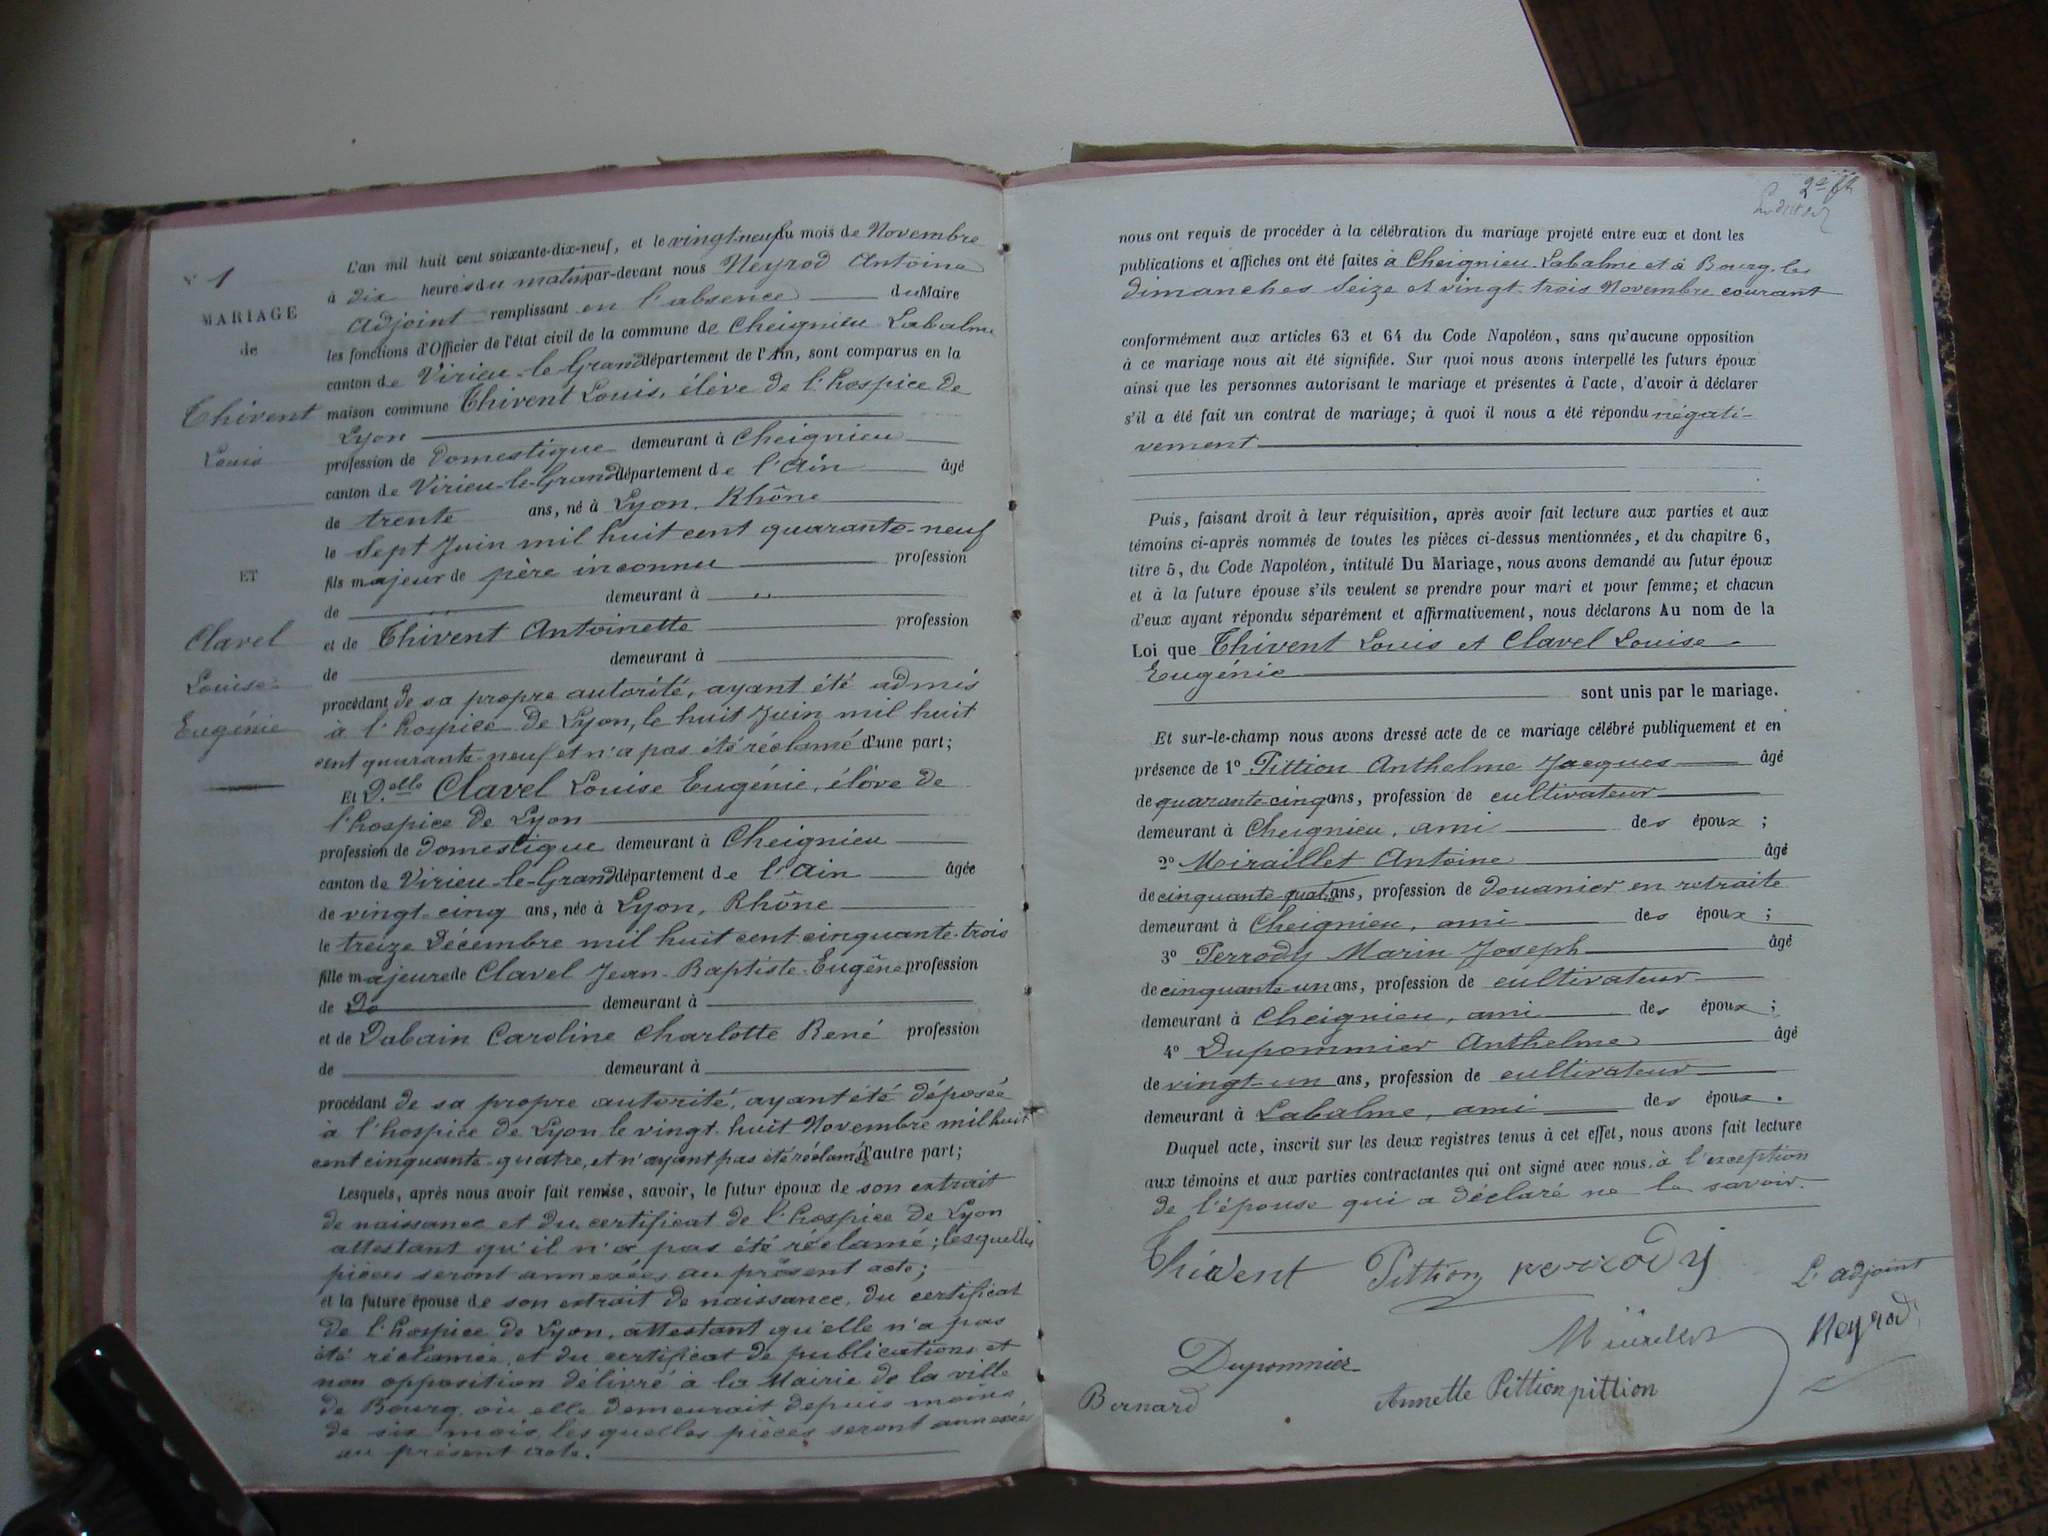 N° 1
MARIAGE
de
Thivent
Louis
ET
Clavel
Louise
Eugénie
L'an mil huit cent soixante-dix-neuf, et le vingt-neuf du mois de Novembre
à dix heures du matin par-devant nous Neyrod Antoine
adjoint remplissant en l'absence du Maire
les fonctions d'Officier de l'état civil de la commune de Cheignieu Labalme
canton de Virieu-le-Grand département de l'Ain, sont comparus en la
maison commune Thivent Louis, élève de l'hospice de
Lyon
profession de Domestique demeurant à Cheignieu
canton de Virieu-le-Grand département de l'Ain âgé
de trente ans, né à Lyon, Rhône
le Sept Juin mil huit cent quarante-neuf
fils majeur de père inconnu profession
de demeurant à
et de Thivent Antoinette profession
de demeurant à
procédant de sa propre autorité, ayant été admis
à l'hospice de Lyon, le huit Juin mil huit
cent quarante-neuf et n'a pas été réclamé d'une part;
Et D.elle Clavel Louise Eugénie, élève de
l'hospice de Lyon
profession de domestique demeurant à Cheignieu
canton de Virieu-le-Grand département de l'Ain âgée
de vingt-cinq ans, née à Lyon, Rhône
le treize Décembre mil huit cent cinquante-trois
fille majeure de Clavel Jean-Baptiste-Eugène profession
de De demeurant à
et de Dabain Caroline Charlotte René profession
de demeurant à
procédant de sa propre autorité, ayant été déposée
à l'hospice de Lyon le vingt-huit Novembre mil huit
cent cinquante-quatre, et n'ayant pas été réclamée d'autre part;
Lesquels, après nous avoir fait remise, savoir, le futur époux de son extrait
de naissance et du certificat de l'hospice de Lyon
attestant qu'il n'a pas été réclamé; lesquelles
pièces seront annexées au présent acte;
et la future épouse de son extrait de naissance, du certificat
de l'hospice de Lyon, attestant qu'elle n'a pas
été réclamée, et du certificat de publications et
non opposition délivré à la Mairie de la ville
de Bourg, où elle demeurait depuis moins
de six mois, lesquelles pièces seront annexées
au présent acte.
nous ont requis de procéder à la célébration du mariage projeté entre eux et dont les
publications et affiches ont été faites à Cheignieu-Labalme et à Bourg, les
dimanches Seize et vingt-trois Novembre courant
conformément aux articles 63 et 64 du Code Napoléon, sans qu'aucune opposition
à ce mariage nous ait été signifiée. Sur quoi nous avons interpellé les futurs époux
ainsi que les personnes autorisant le mariage et présentes à l'acte, d'avoir à déclarer
s'il a été fait un contrat de mariage; à quoi il nous a été répondu négati-
vement
Puis, faisant droit à leur réquisition, après avoir fait lecture aux parties et aux
témoins ci-après nommés de toutes les pièces ci-dessus mentionnées, et du chapitre 6,
titre 5, du Code Napoléon, intitulé Du Mariage, nous avons demandé au futur époux
et à la future épouse s'ils veulent se prendre pour mari et pour femme; et chacun
d'eux ayant répondu séparément et affirmativement, nous déclarons Au nom de la
Loi que Thivent Louis et Clavel Louise
Eugénie
sont unis par le mariage.
Et sur-le-champ nous avons dressé acte de ce mariage célébré publiquement et en
présence de 1° Pittion Anthelme Jacques âgé
de quarante-cinq ans, profession de cultivateur
demeurant à Cheignieu, ami des époux ;
2° Miraillet Antoine âgé
de cinquante-quatre ans, profession de douanier en retraite
demeurant à Cheignieu, ami des époux ;
3° Perrody Marin Joseph âgé
de cinquante-un ans, profession de cultivateur
demeurant à Cheignieu, ami des époux ;
4° Dupommier Anthelme âgé
de vingt-un ans, profession de cultivateur
demeurant à Labalme, ami des époux .
Duquel acte, inscrit sur les deux registres tenus à cet effet, nous avons fait lecture
aux témoins et aux parties contractantes qui ont signé avec nous, à l'exception
de l'épouse qui a déclaré ne le savoir.
Thivent Pittion perrody
L'adjoint
Neyrod
Miraillet
Dupommier
Bernard
Annette Pittion pittion